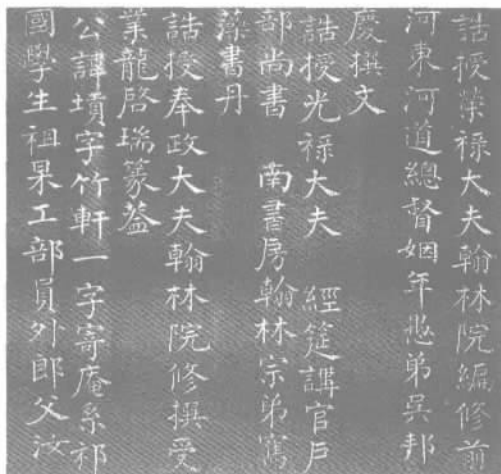 誥授榮祿大夫翰林院編修前
河東河道總督姻年愻弟吳邦
慶撰文
誥授光祿大夫　經筵講官戶
部尚書　南書房翰林宗弟寯
藻書丹
誥授奉政大夫翰林院修撰受
業龍啓瑞篆葢
公諱墳字竹軒一字寄庵系祁
國學生祖杲工部員外郎父汝